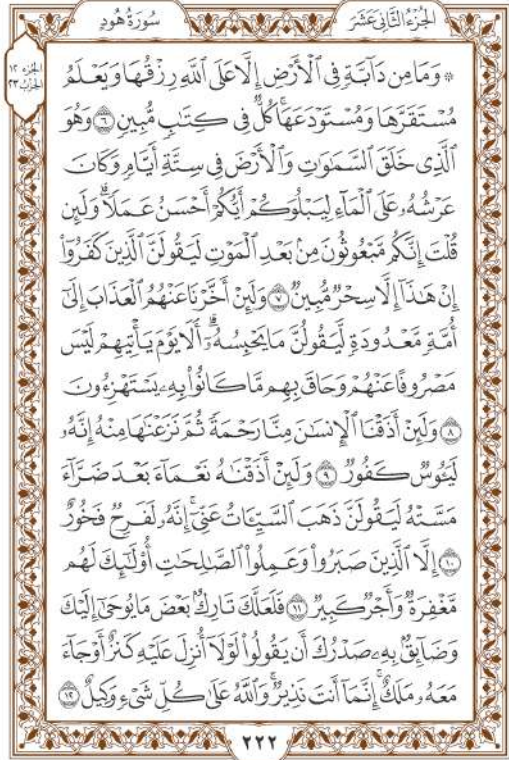 الجزء الثاني عشر
سورة هود
الجزء ١٢
الحزب ٢٣
۞ وَمَا مِن دَآبَّةٖ فِي ٱلۡأَرۡضِ إِلَّا عَلَى ٱللَّهِ رِزۡقُهَا وَيَعۡلَمُ
مُسۡتَقَرَّهَا وَمُسۡتَوۡدَعَهَاۚ كُلّٞ فِي كِتَٰبٖ مُّبِينٖ ٦ وَهُوَ
ٱلَّذِي خَلَقَ ٱلسَّمَٰوَٰتِ وَٱلۡأَرۡضَ فِي سِتَّةِ أَيَّامٖ وَكَانَ
عَرۡشُهُۥ عَلَى ٱلۡمَآءِ لِيَبۡلُوَكُمۡ أَيُّكُمۡ أَحۡسَنُ عَمَلٗاۗ وَلَئِن
قُلۡتَ إِنَّكُم مَّبۡعُوثُونَ مِنۢ بَعۡدِ ٱلۡمَوۡتِ لَيَقُولَنَّ ٱلَّذِينَ كَفَرُوٓاْ
إِنۡ هَٰذَآ إِلَّا سِحۡرٞ مُّبِينٞ ٧ وَلَئِنۡ أَخَّرۡنَا عَنۡهُمُ ٱلۡعَذَابَ إِلَىٰٓ
أُمَّةٖ مَّعۡدُودَةٖ لَّيَقُولُنَّ مَا يَحۡبِسُهُۥٓۗ أَلَا يَوۡمَ يَأۡتِيهِمۡ لَيۡسَ
مَصۡرُوفًا عَنۡهُمۡ وَحَاقَ بِهِم مَّا كَانُواْ بِهِۦ يَسۡتَهۡزِءُونَ
٨ وَلَئِنۡ أَذَقۡنَا ٱلۡإِنسَٰنَ مِنَّا رَحۡمَةٗ ثُمَّ نَزَعۡنَٰهَا مِنۡهُ إِنَّهُۥ
لَيَـُٔوسٞ كَفُورٞ ٩ وَلَئِنۡ أَذَقۡنَٰهُ نَعۡمَآءَ بَعۡدَ ضَرَّآءَ
مَسَّتۡهُ لَيَقُولَنَّ ذَهَبَ ٱلسَّيِّـَٔاتُ عَنِّيٓۚ إِنَّهُۥ لَفَرِحٞ فَخُورٌ
١٠ إِلَّا ٱلَّذِينَ صَبَرُواْ وَعَمِلُواْ ٱلصَّٰلِحَٰتِ أُوْلَٰٓئِكَ لَهُم
مَّغۡفِرَةٞ وَأَجۡرٞ كَبِيرٞ ١١ فَلَعَلَّكَ تَارِكُۢ بَعۡضَ مَا يُوحَىٰٓ إِلَيۡكَ
وَضَآئِقُۢ بِهِۦ صَدۡرُكَ أَن يَقُولُواْ لَوۡلَآ أُنزِلَ عَلَيۡهِ كَنزٌ أَوۡ جَآءَ
مَعَهُۥ مَلَكٌۚ إِنَّمَآ أَنتَ نَذِيرٞۚ وَٱللَّهُ عَلَىٰ كُلِّ شَيۡءٖ وَكِيلٌ ١٢
٢٢٢